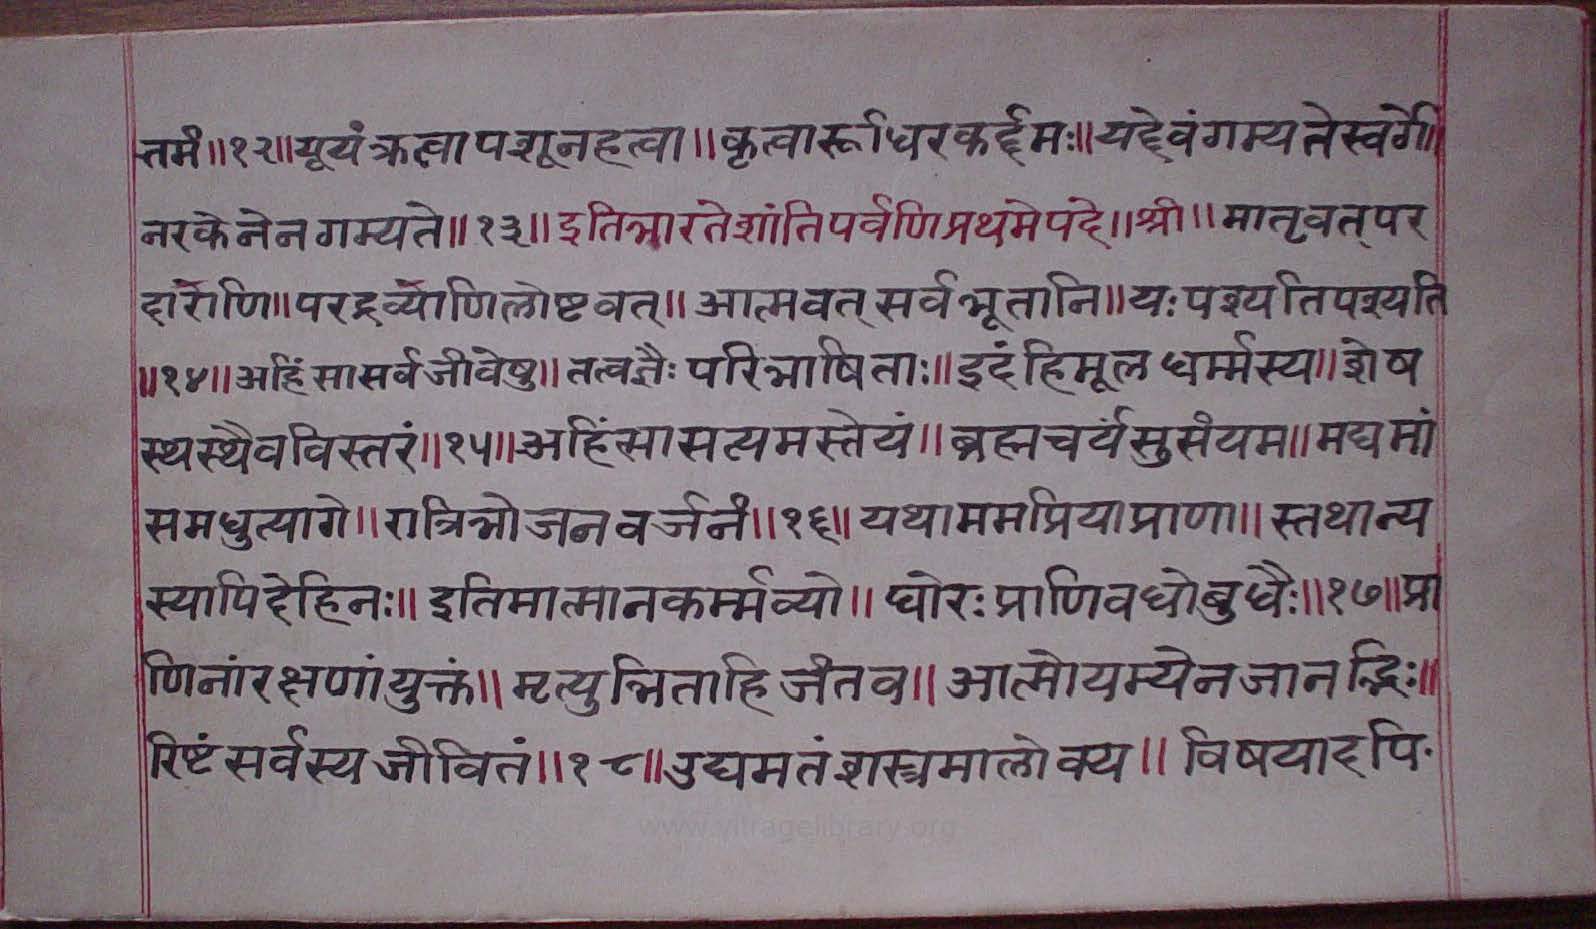 त्तमं॥१२॥यूयं क्रत्वा पशून हत्वा॥कृत्वा रूधिर कर्द्दमः॥यद्देवं गम्यते स्वर्गे॥
नरके नेन गम्यते॥१३॥इति भारते शांति पर्वणि प्रथमे पदे॥श्री॥मातृवत् पर
दारोणि॥परद्रव्योणि लोष्टवत्॥आत्मवत् सर्वभूतानि॥यः पश्यति पश्यति
॥१४॥अहिंसा सर्वजीवेषु॥तत्वज्ञैः परिभाषिताः॥इदं हि मूल धर्म्मस्य॥शेष
स्थस्थैव विस्तरं॥१५॥अहिंसा सत्यमस्तेयं॥ब्रह्मचर्यं सुसंयम॥मद्यमां
समधुत्यागे॥रात्रिभोजन वर्जनं॥१६॥यथा मम प्रिया प्राणा॥स्तथान्य
स्यापि देहिनः॥इति मात्मानकर्म्मव्यो॥घोरः प्राणिवधो बुधैः॥१७॥प्रा
णिनां रक्षणां युक्तं॥मृत्युभिता हि जंतव॥आत्मोयम्येन जानद्भिः॥
रिष्टं सर्वस्य जीवितं॥१८॥उद्यमतं शस्त्रमालोक्य॥विषयादपि
www.vitragelibrary.org